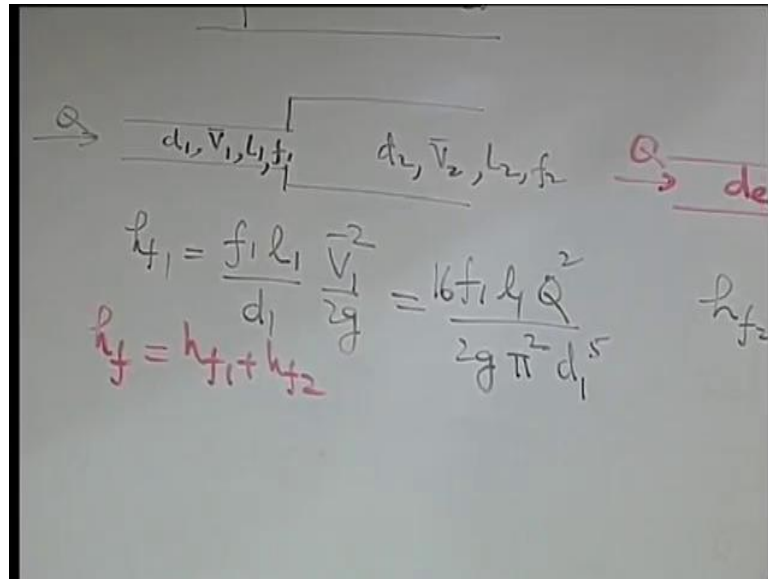 Q → d₁, V̄₁, l₁, f₁ d₂, V̄₂, l₂, f₂ Q → de
h_f₁ = f₁ l₁ / d₁ V̄₁² / 2g = 16 f₁ l₁ Q² / 2g π² d₁⁵ h_f₂
h_f = h_f₁ + h_f₂